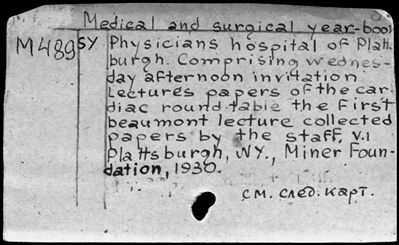 Medical and surgical year-book
M489 SY Physicians hospital of Platts-
burgh. Comprising wednes-
day afternoon invitation
Lectures papers of the car-
diac round table the first
beaumont lecture collected
papers by the staff, V.1
Plattsburgh, NY., Miner Foun-
dation, 1930.
См. след. карт.